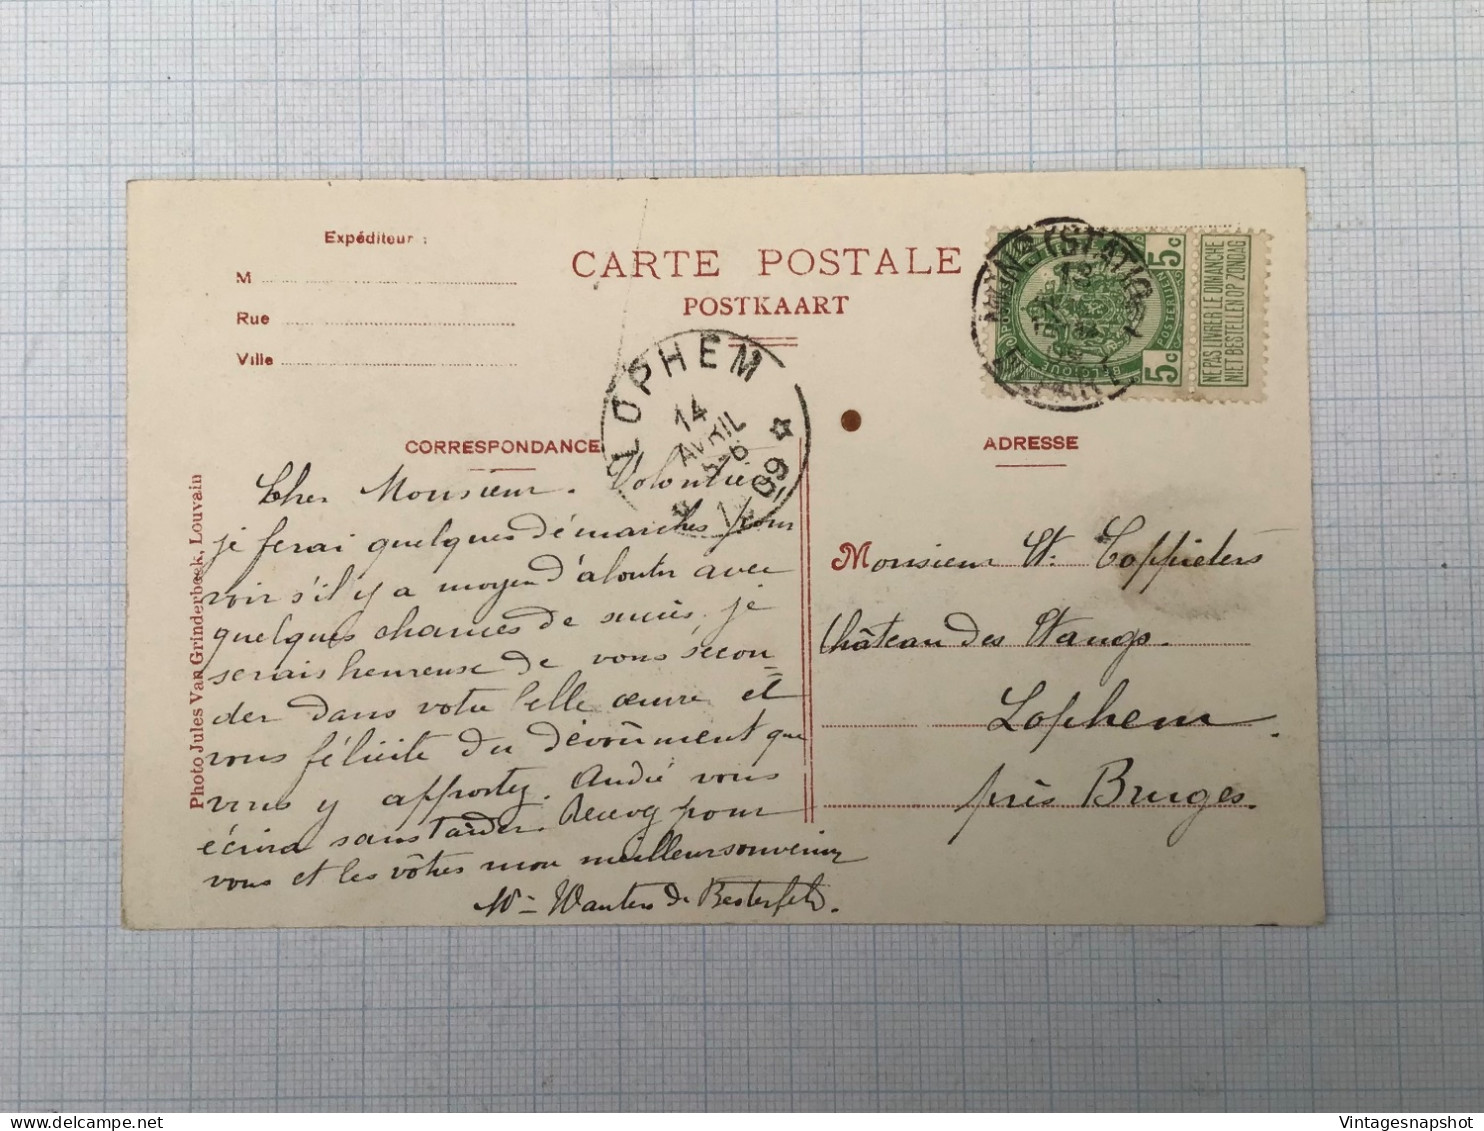 Expéditeur :
M
Rue
Ville
CARTE POSTALE
POSTKAART
LOPHEM
14
AVRIL
5-6
09
(STATION)
13
5c
5c
BELGIQUE
NE PAS LIVRER LE DIMANCHE
NIET BESTELLEN OP ZONDAG
CORRESPONDANCE
ADRESSE
Photo Jules Van Grinderbeek, Louvain
Cher Monsieur. Volontiers
je ferai quelques démarches pour
voir s'il y a moyen d'aboutir avec
quelques chances de succès, je
serais heureuse de vous secon=
der dans votre belle œuvre et
vous félicite du dévoûment que
vous y apportez. André vous
écrira sans tarder. Recevez pour
vous et les vôtres mon meilleur souvenir
Wauters de Besterfeld.
Monsieur St. Coppieters
Château des Etangs.
Lophem.
près Bruges.
Vintagesnapshot